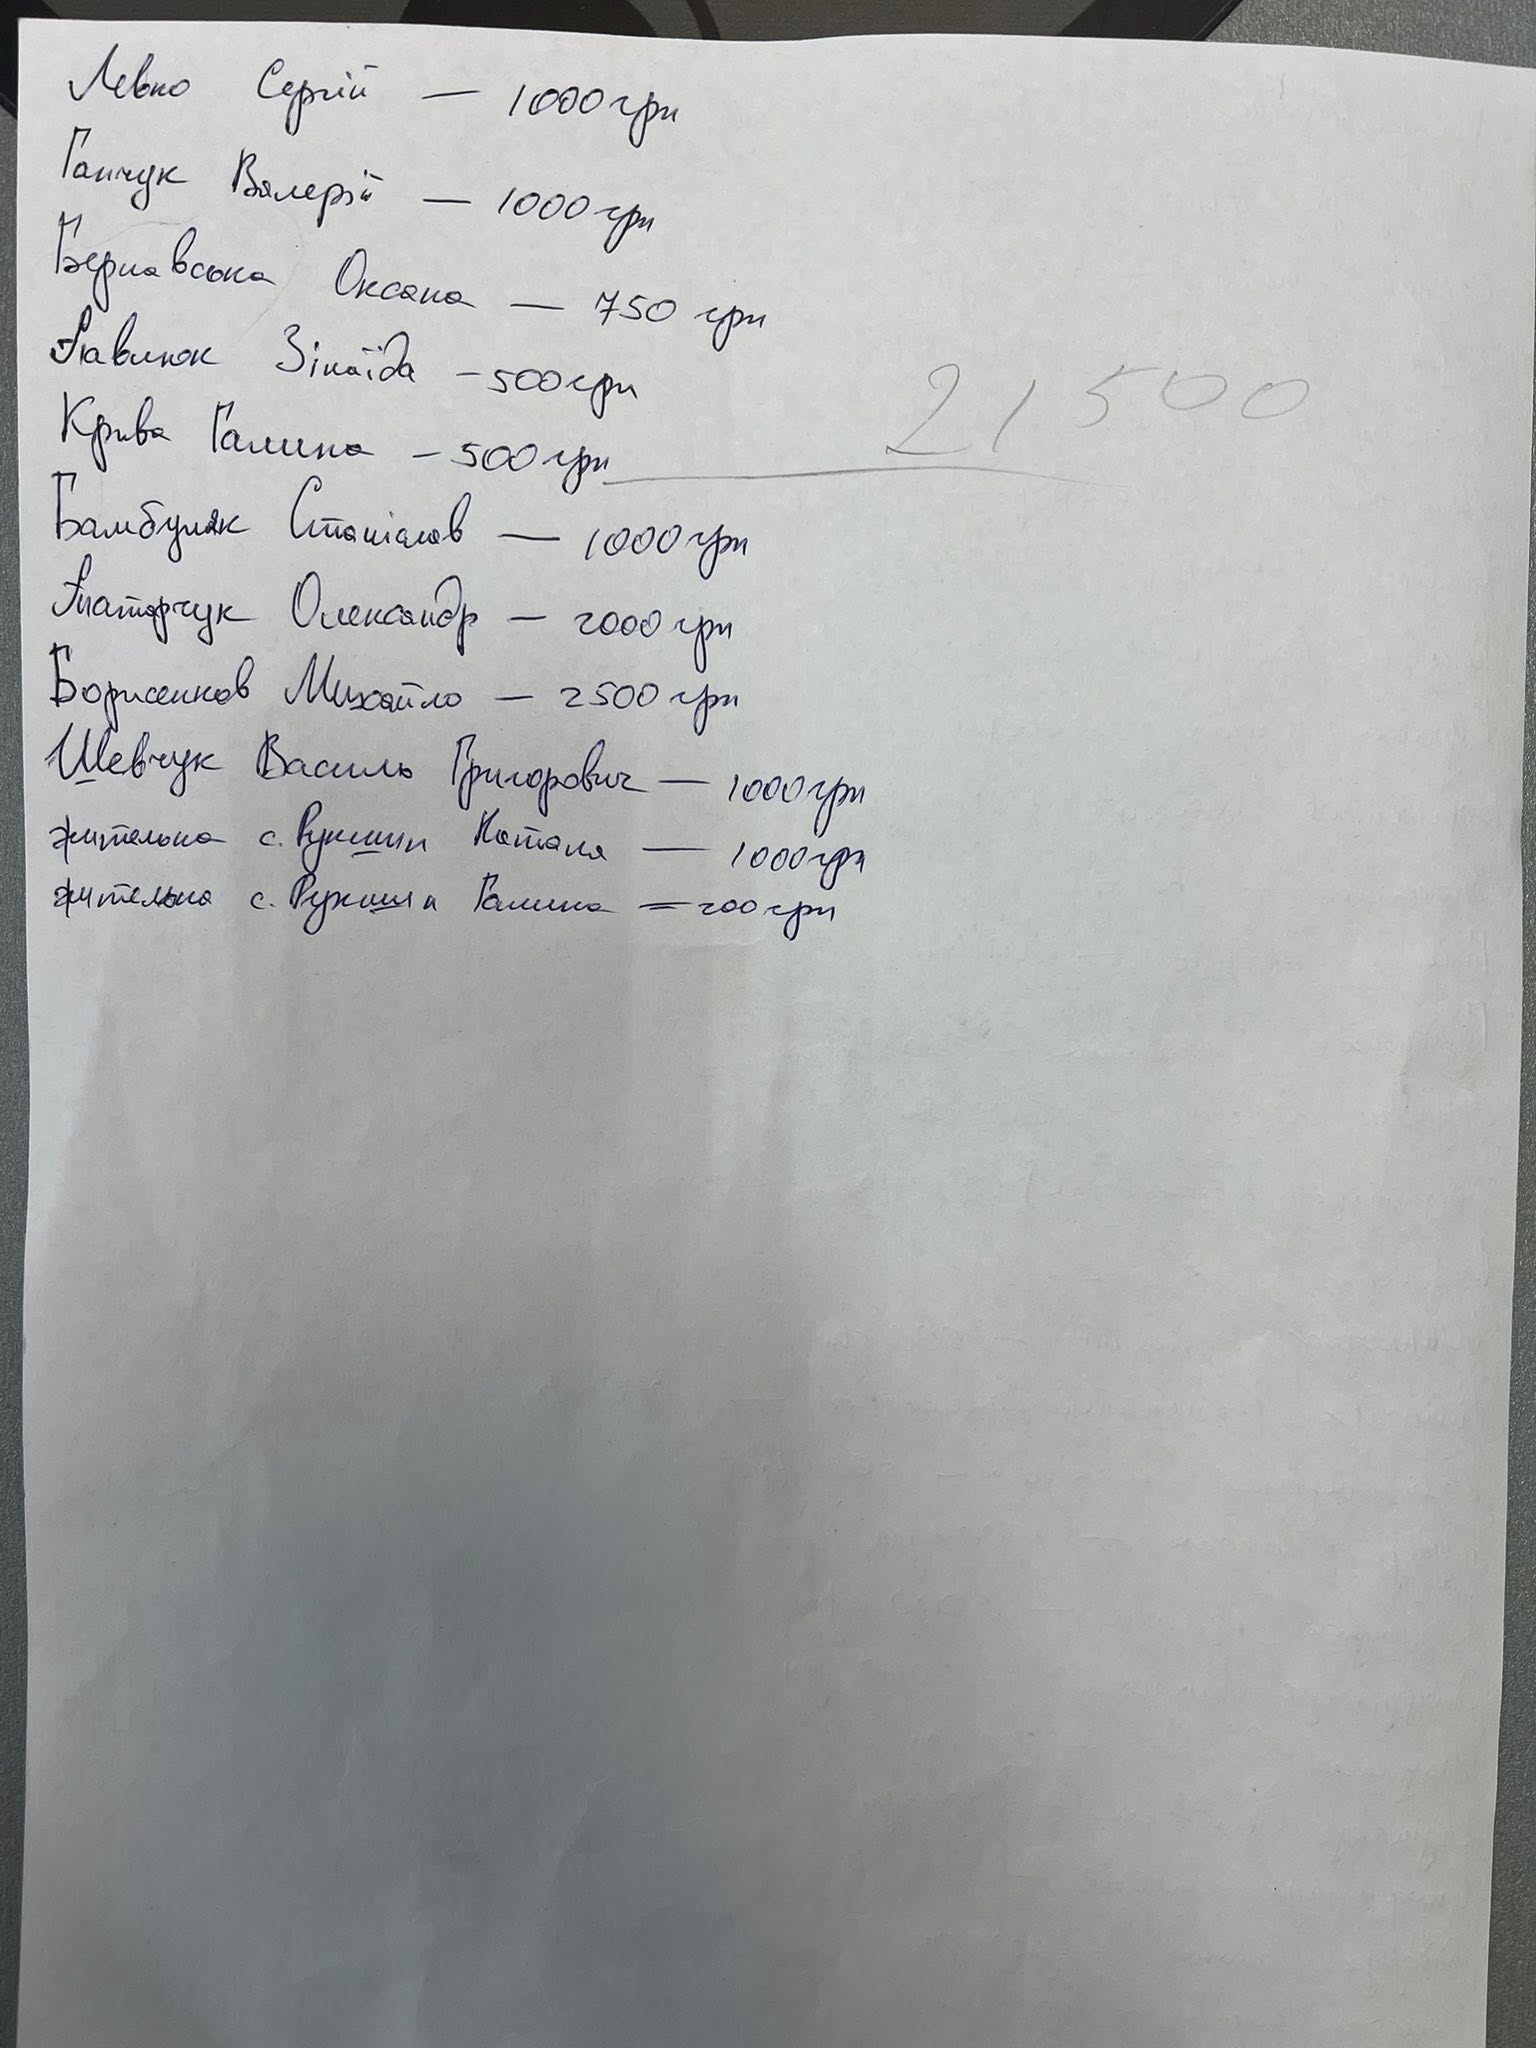 Левко Сергій — 1000 грн
Гапчук Валерій — 1000 грн
Бернавська Оксана — 750 грн
Павлюк Зінаїда – 500 грн
Крива Галина – 500 грн
21500
Бамбуляк Станіслав — 1000 грн
Платарчук Олександр – 2000 грн
Борисенков Михайло – 2500 грн
Шевчук Василь Григорович — 1000 грн
жителька с. Рукшин Наталя — 1000 грн
жителька с. Рукшин Галина – 200 грн